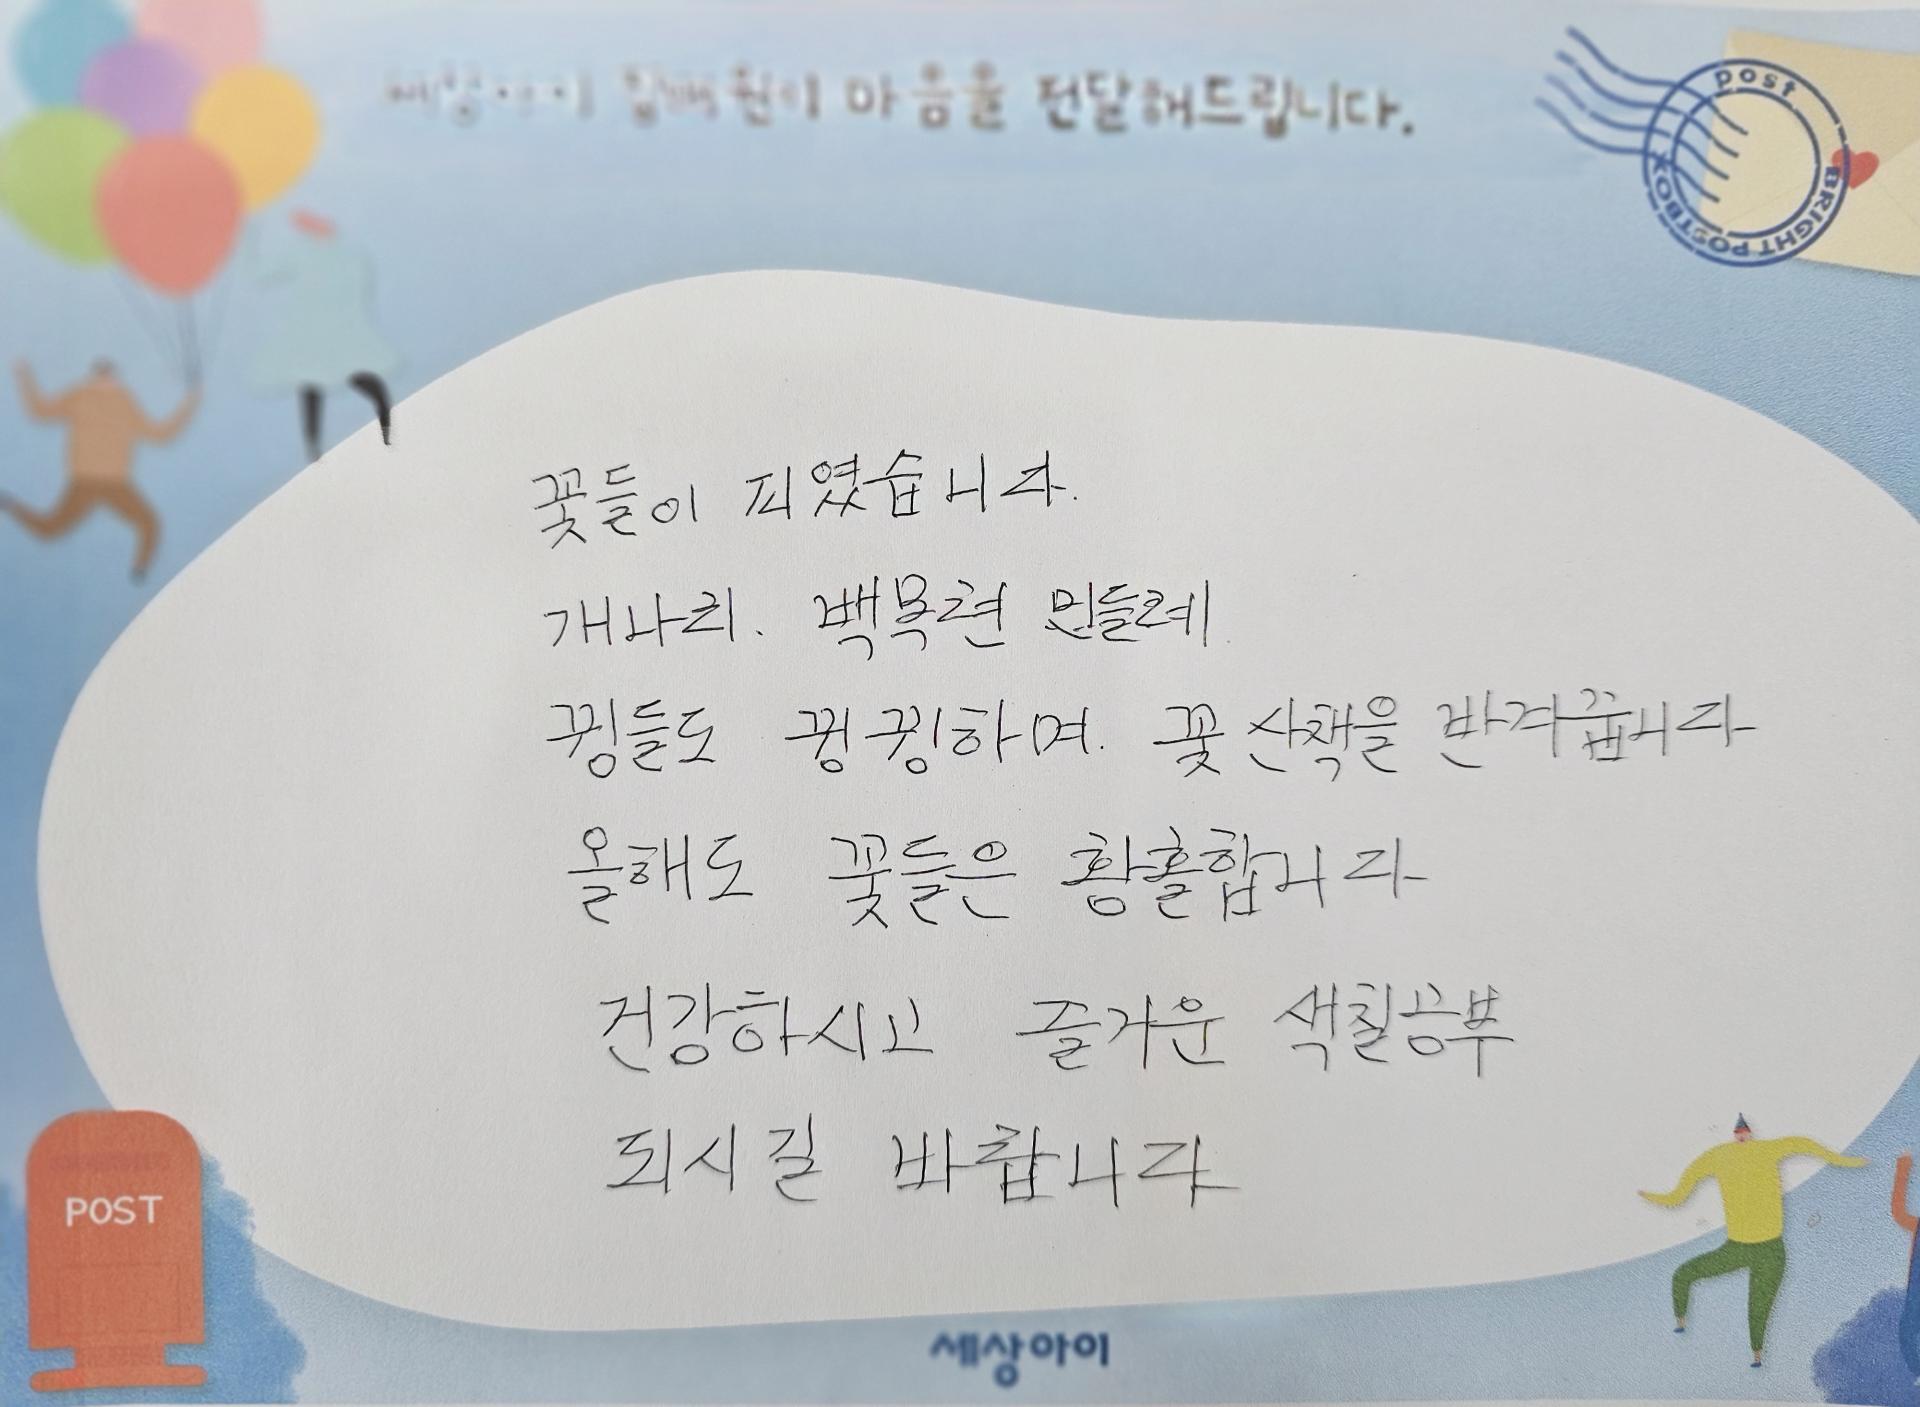 마음을 전달해드립니다.
post
BRIGHT POSTBOX
꽃들이 피였습니다.
개나리. 백목련 민들레.
꿩들도 꿩꿩하며. 꽃산책을 반겨줍니다
올해도 꽃들은 황홀합니다
건강하시고 즐거운 색칠공부
되시길 바랍니다
POST
세상아이